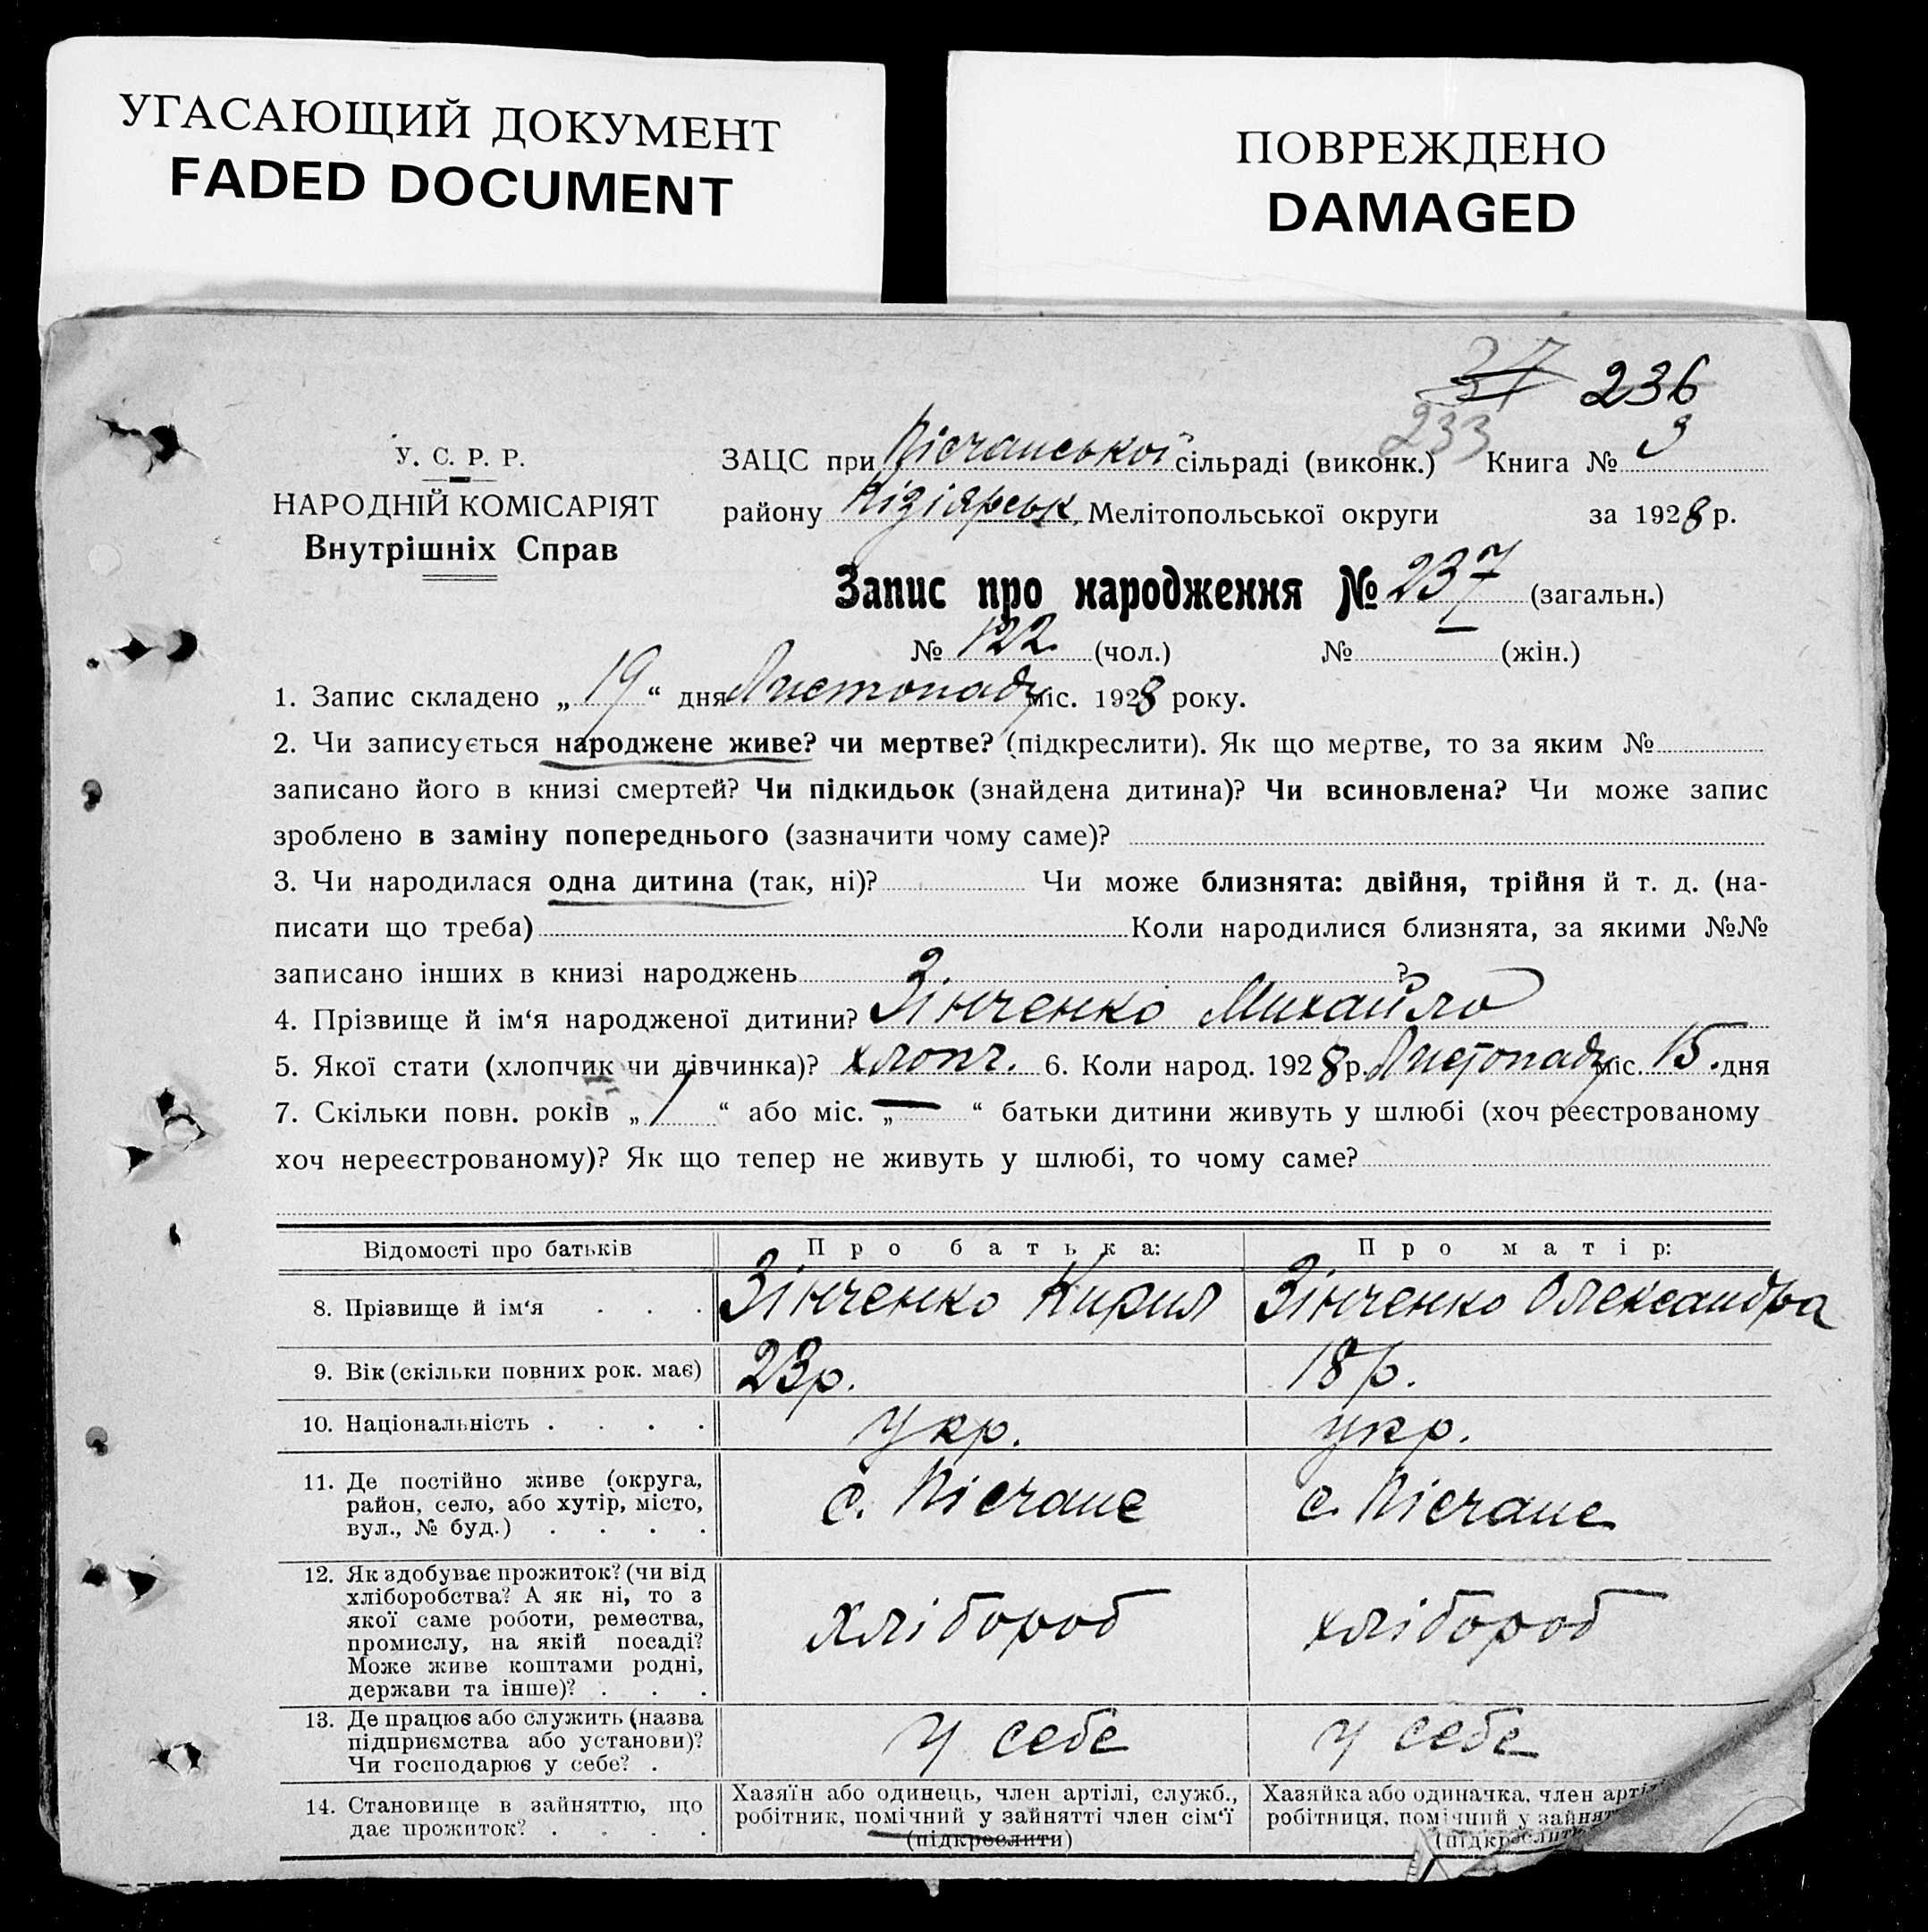 УГАСАЮЩИЙ ДОКУМЕНТ
FADED DOCUMENT
ПОВРЕЖДЕНО
DAMAGED
37 236
233
У. С. Р. Р.
НАРОДНІЙ КОМІСАРІЯТ
Внутрішніх Справ
ЗАЦС при Пісчанської сільраді (виконк.) Книга № 3
району Кізіярськ. Мелітопольської округи за 1928 р.
Запис про народження № 237 (загальн.)
№ 122 (чол.) № (жін.)
1. Запис складено „19“ дня Листопаду міс. 1928 року.
2. Чи записується народжене живе? чи мертве? (підкреслити). Як що мертве, то за яким №
записано його в книзі смертей? Чи підкидьок (знайдена дитина)? Чи всиновлена? Чи може запис
зроблено в заміну попереднього (зазначити чому саме)?
3. Чи народилася одна дитина (так, ні)? Чи може близнята: двійня, трійня й т. д. (на-
писати що треба) Коли народилися близнята, за якими №№
записано інших в книзі народжень ?
4. Прізвище й ім‘я народженої дитини? Зінченко Михайло
5. Якої стати (хлопчик чи дівчинка)? хлопч. 6. Коли народ. 1928 р. Листопаду міс. 15 дня
7. Скільки повн. років „1“ або міс. „—“ батьки дитини живуть у шлюбі (хоч реєстрованому
хоч нереєстрованому)? Як що тепер не живуть у шлюбі, то чому саме?
Відомості про батьків Про батька: Про матір:
8. Прізвище й ім‘я . . . Зінченко Кирил Зінченко Олександра
9. Вік (скільки повних рок. має) 23р. 18р.
10. Національність . . . . укр. укр.
11. Де постійно живе (округа,
район, село, або хутір, місто,
вул., № буд.) . . . .
с. Пісчане с. Пісчане
12. Як здобуває прожиток? (чи від
хліборобства? А як ні, то з
якої саме роботи, ремества,
промислу, на якій посаді?
Може живе коштами родні,
держави та інше)? . . .
хлібороб хлібороб
13. Де працює або служить (назва
підприємства або установи)?
Чи господарює у себе? .
у себе у себе
14. Становище в зайняттю, що
дає прожиток? . . . .
Хазяїн або одинець, член артілі, служб.,
робітник, помічний у зайнятті член сім‘ї
(підкреслити)
Хазяйка або одиначка, член артілі
робітниця, помічний у зайнят
(підкреслит